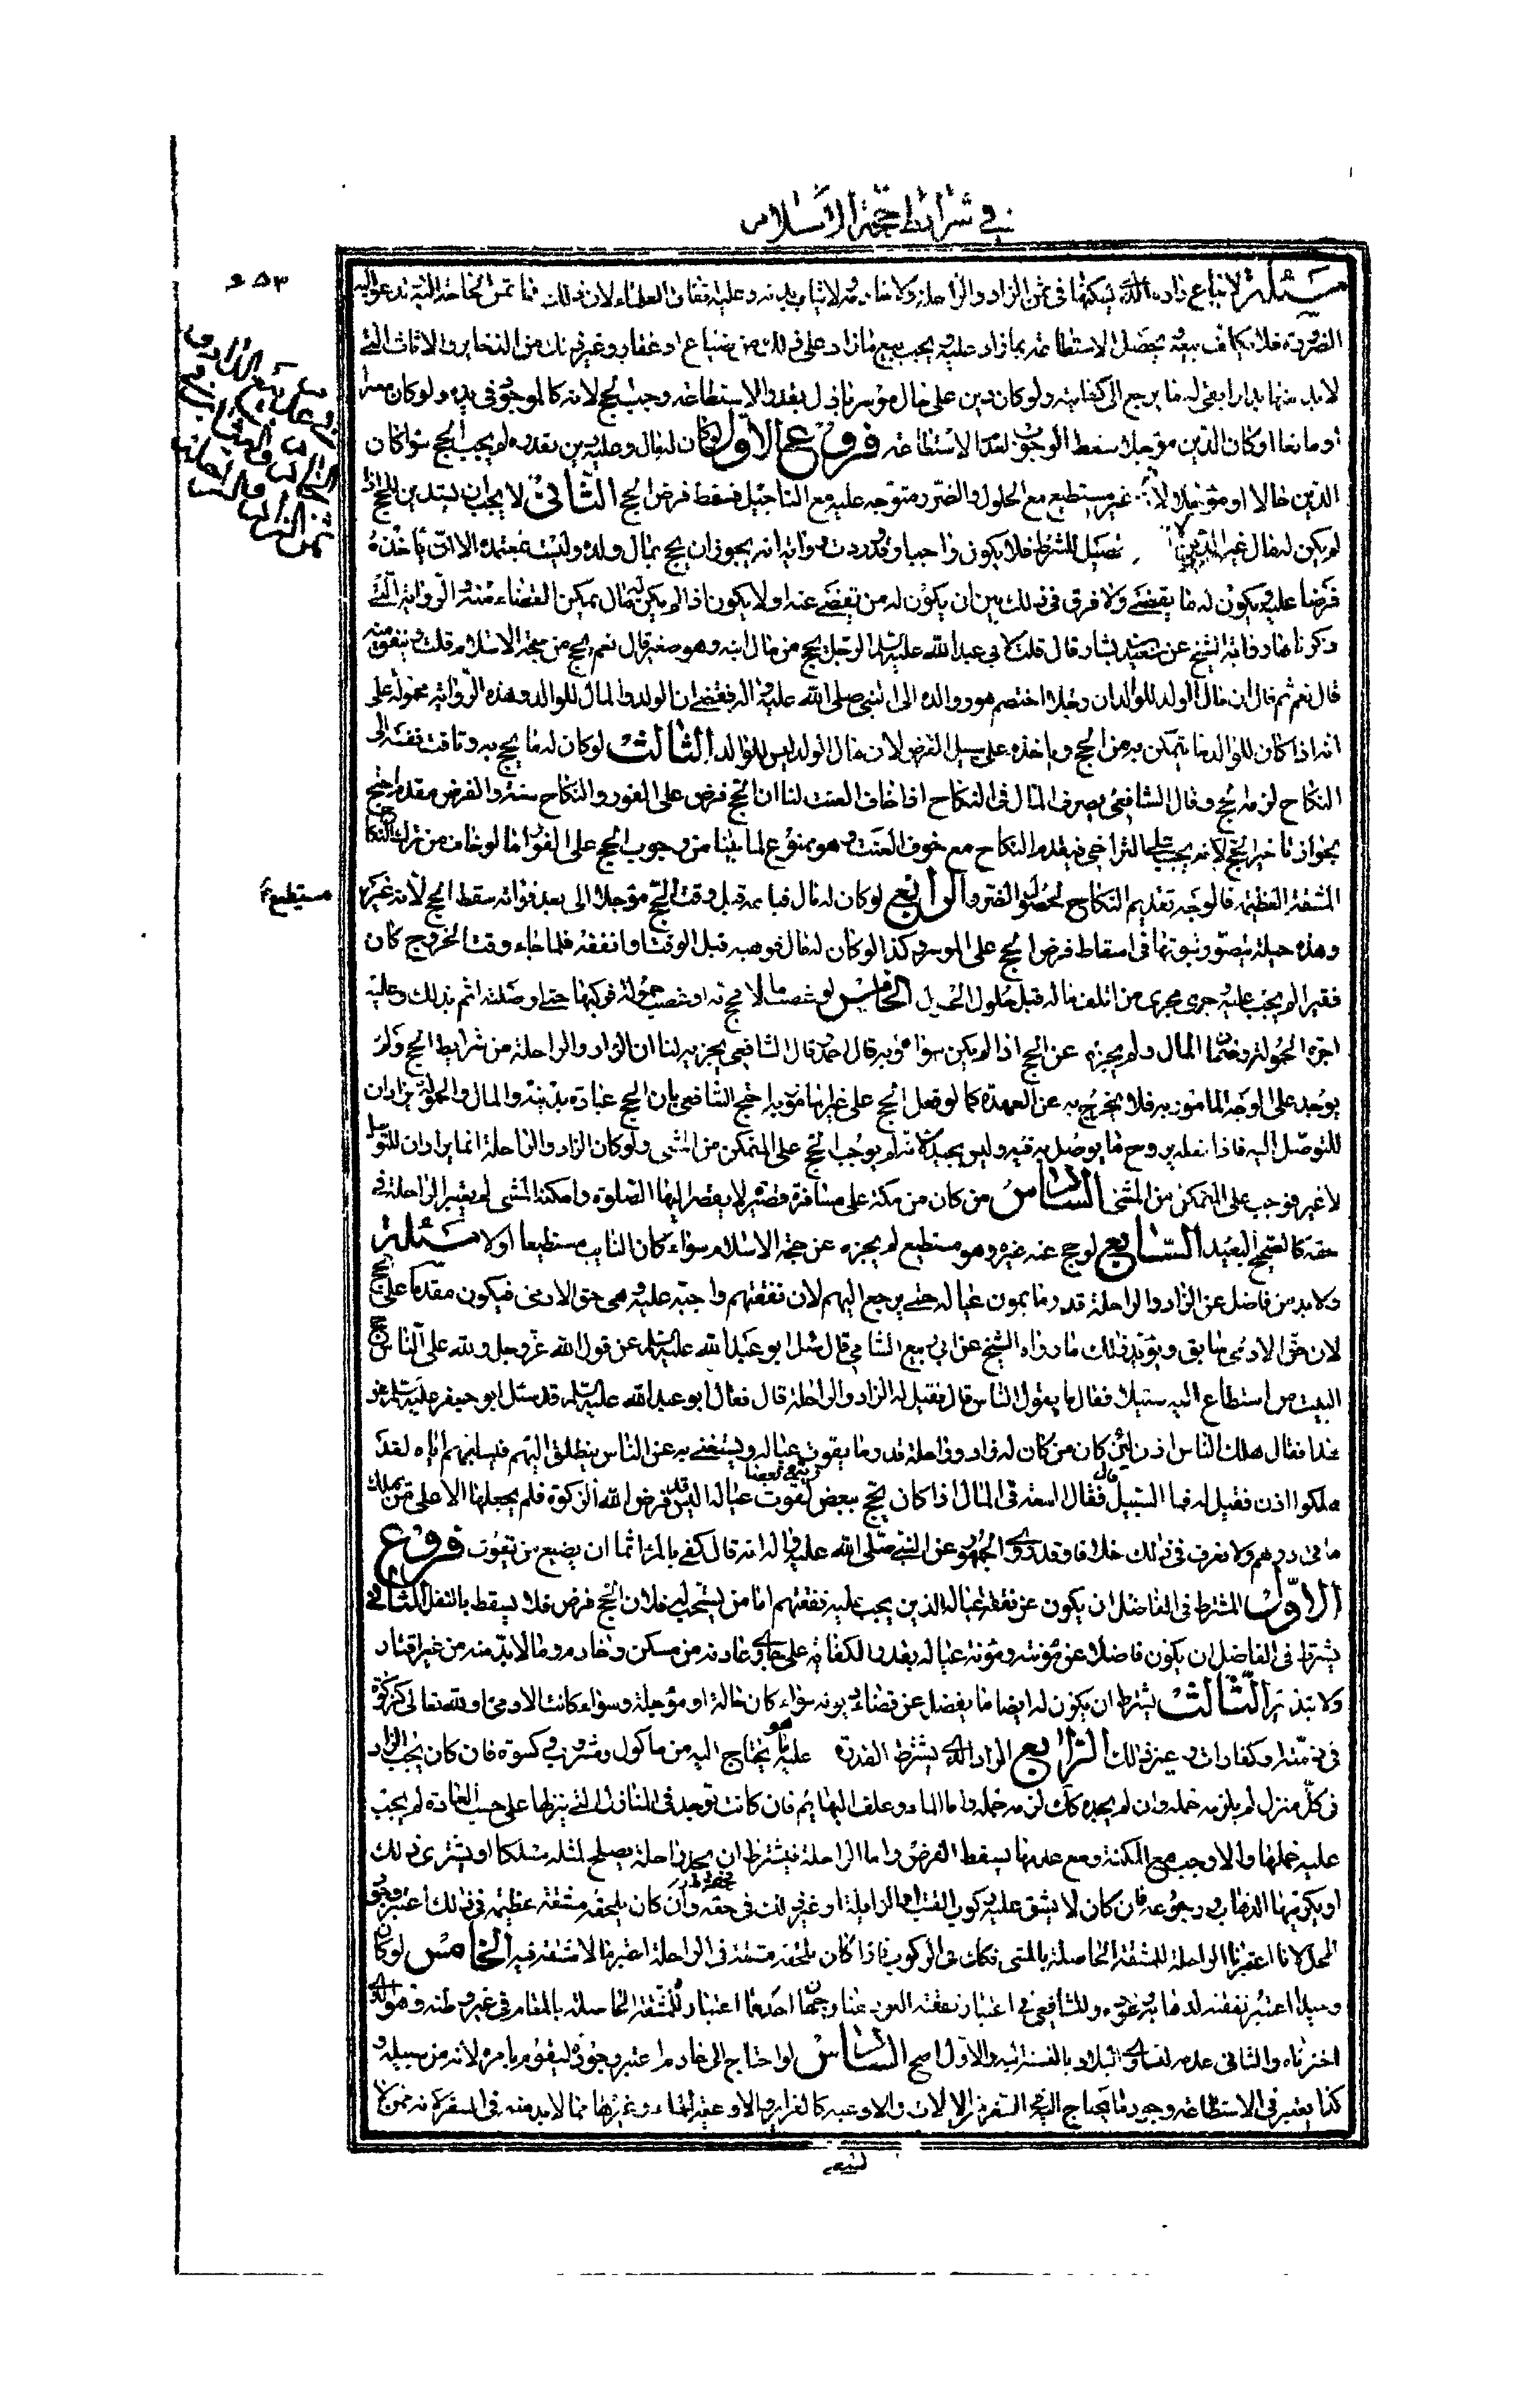 في شرائط حجة الاسلام
٦٥٣
مسئلة لا يباع داره التي يسكنها في ثمن الزاد والراحلة ولا خادمه ولا ثياب بدنه وعليه اتفاق العلماء لان ذلك مما تمس الحاجة اليه وتدعو اليه
الضرورة فلا يكلف بيعه يحصل الاستطاعة بما زاد عليه ويجب بيع ما زاد على ذلك من ضياع او عقار وغير ذلك من الذخاير والاثاث التي
لا بد منها اذا بقى له ما يرجع الى كفايته ولو كان دين على خال موسر باذل بقدر الاستطاعة وجب الحج لانه كالموجود في يده ولو كان معسرا
او مانعا او كان الدين مؤجلا سقط الوجوب لعدم الاستطاعة فروع الاول لو كان له مال وعليه دين بقدره لم يجب الحج سواء كان
الدين حالا او مؤجلا لانه غير مستطيع مع الحلول والضرر متوجه عليه مع التاجيل فسقط فرض الحج الثاني لا يجب ان يستدين للحج اذا
لم يكن له مال غير الدين تحصيل للشرط فلا يكون واجبا وقد وردت رواية انه يجوز ان يحج بمال ولده وليست بمعتمدة الا ان ياخذه
قرضا عليه ويكون له ما يقضى ولا فرق في ذلك بين ان يكون له من يقضى عنه او لا يكون اذا لم يكن له مال يمكن القضاء منه والرواية التي
ذكرناها رواية الشيخ عن سعيد بن يسار قال قلت لابي عبد الله عليه السلم الرجل يحج من مال ابنه وهو صغير قال نعم يحج من حجة الاسلام قلت وينفق منه
قال نعم ثم قال ان مال الولد للوالد ان رجلا اختصم هو ووالده الى النبي صلى الله عليه واله فقضى ان الولد والمال للوالد وهذه الرواية محمولة على
انه اذا كان للوالد ما يتمكن به من الحج وياخذه على سبيل القرض لان مال الولد ليس للوالد الثالث لو كان له ما يحج به وتاقت نفسه الى
النكاح لزمه الحج وقال الشافعي يصرف المال في النكاح اذا خاف العنت لنا ان الحج فرض على الفور والنكاح سنة والفرض مقدم احتج
بجواز تاخير الحج لانه يجب على التراخي فيقدم النكاح مع خوف العنت وهو ممنوع لما بينا من وجوب الحج على الفور اما لو خاف من ترك النكاح
المشقة العظيمة فالوجه تقديم النكاح لحصول الضرر الرابع لو كان له مال فباعه قبل وقت الحج مؤجلا الى بعد فواته سقط الحج لانه غير
مستطيع
وهذه حيلة يتصور ثبوتها في اسقاط فرض الحج على الموسر وكذا لو كان له مال فوهبه قبل الوقت او انفقه فلما جاء وقت الخروج كان
فقيرا لم يجب عليه وجرى مجرى من اتلف ماله قبل حلول الحول الخامس لو غصب مالا فحج به او غصب حمولة فركبها حتى اوصلته اثم بذلك وعليه
اجرة الحمولة وضمان المال ولم يجزه عن الحج اذا لم يكن سواه وبه قال احمد وقال الشافعي يجزيه لنا ان الزاد والراحلة من شرايط الحج ولم
يوجد على الوجه المامور به فلا يخرج به عن العهدة كما لو فعل الحج على غير المامور به احتج الشافعي بان الحج عبادة بدنية والمال والحمولة يرادان
للتوصل اليه فاذا فعله بروح ما يوصل به قيه وليس بجيد لانه لم يوجب الحج على المتمكن من المشي ولو كان الزاد والراحلة انما يرادان للتوصل
لا غير فوجب على المتمكن من المشي السادس من كان من مكة على مسافة قصيرة لا يقصر اليها الصلوة وامكنه المشي لم يعتبر الراحلة في
حقه كالصحيح البعيد السابع لو حج عنه غيره وهو مستطيع لم يجزه عن حجة الاسلام سواء كان النايب مستطيعا او لا مسئلة
ولا بد من فاضل عن الزاد والراحلة قدر ما يمون عياله حتى يرجع اليهم لان نفقتهم واجبة عليه وهي حق الادمي فيكون مقدما على الحج
لان حق الادمي سابق ويؤيد ذلك ما رواه الشيخ عن ابي ربيع الشامي قال سئل ابو عبد الله عليه السلم عن قول الله عز وجل ولله على الناس حج
البيت من استطاع اليه سبيلا فقال ما يقول الناس قال فقيل له الزاد والراحلة قال فقال ابو عبد الله عليه السلم قد سئل ابو جعفر عليه السلم عن
هذا فقال هلك الناس اذن لئن كان من كان له زاد وراحلة قدر ما يقوت عياله ويستغنى به عن الناس ينطلق اليهم فيسلبهم اياه لقد
هلكوا اذن فقيل له فما السبيل قال فقال السعة في المال اذا كان يحج ببعض ويبقى بعضا لقوت عياله اليس قد فرض الله الزكوة فلم يجعلها الا على من يملك
مائتي درهم ولا نعرف في ذلك خلافا وقد روى الجمهور عن النبي صلى الله عليه واله انه قال كفى بالمرء اثما ان يضيع من يقوت فروع
الاول المشترط في الفاضل ان يكون عن نفقة عياله الذين يجب عليه نفقتهم اما من يستحب له فلا لان الحج فرض فلا يسقط بالنفل الثاني
يشترط في الفاضل ان يكون فاضلا عن مؤنته ومؤنة عياله بقدر الكفاية على جاري عادته من مسكن وخادم وما لا بد منه من غير اقتار
ولا تبذير الثالث يشترط ان يكون له ايضا ما يفضل عن قضاء ديونه سواء كان حالة او مؤجلة وسواء كانت لادمي او لله تعالى كزكوة
في ذمته او كفارات وغير ذلك الرابع الزاد الذي يشترط القدرة عليه هو ما يحتاج اليه من ماكول ومشروب وكسوة فان كان يجد الزاد
في كل منزل لم يلزمه حمله وان لم يجده كذلك لزمه حمله واما الماء وعلف البهايم فان كانت توجد في المنازل التي ينزلها على حسب العادة لم يجب
عليه حملها والا وجب مع المكنة ومع عدمها يسقط الفرض واما الراحلة فيشترط ان يجد راحلة يصلح لمثله يملكا او يشترى ذلك
او يكريها للذهاب ورجوعه فان كان لا يشق عليه ركوب القتب او الزاملة او غير ذلك في حقه وان كان يلحقه مشقة عظيمة في ذلك اعتبر وجود
المحمل لانا اعتبرنا الراحلة للمشقة الحاصلة بالمشي فكذلك في الركوب فاذا كان يلحقه مشقة في الراحلة اعتبرنا لا مشقة فيه الخامس لو كان
وحيدا اعتبر نفقته لذهابه وعوده وللشافعي في اعتبار نفقة العود هنا وجهان احدهما اعتبار للمشقة الحاصلة بالمقام في غير وطنه وهو الذي
اخترناه والثاني عدمه لتساوي البلاد بالنسبة اليه والاول اصح السادس لو احتاج الى خادم اعتبر وجوده ليقوم بامره لانه من سبيله و
كذا يعتبر في الاستطاعة وجود ما يحتاج اليه في السفر من الالات والاوعية كالغراير والاوعية الماء وغيرها مما لا بد منه في السفر لانه ممن لا